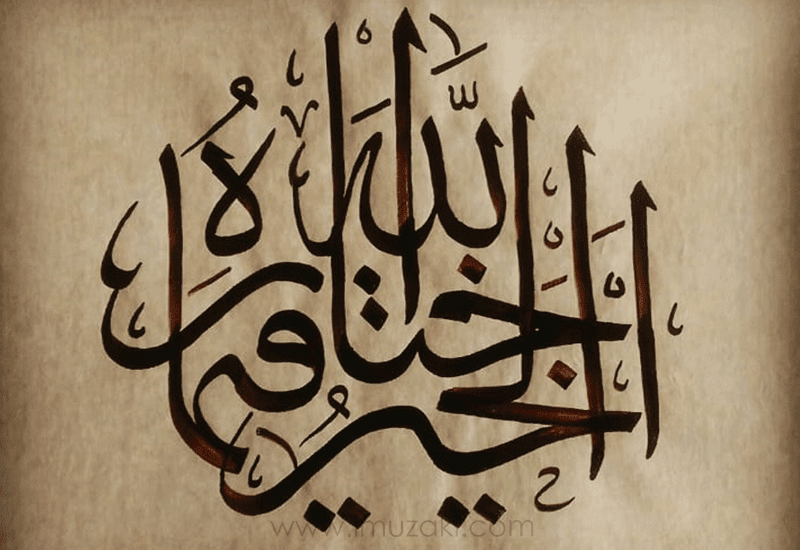 الخير فيما اختاره الله
www.imuzaki.com